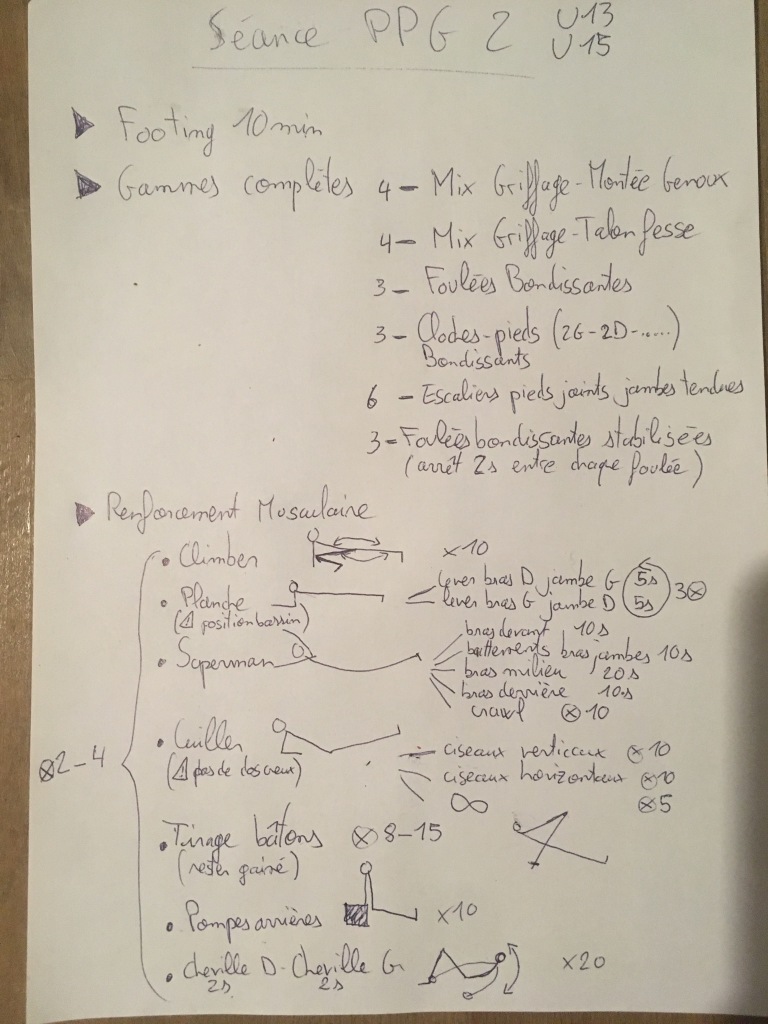 Séance PPG 2 U13
U15
Footing 10min
Gammes complètes 4 - Mix Griffage-Montée Genoux
4 - Mix Griffage-Talon fesse
3 - Foulées Bondissantes
3 - Cloches-pieds (2G-2D-.....)
Bondissants
6 - Escaliers pieds joints, jambes tendues
3 - Foulées bondissantes stabilisées
(arrêt 2s entre chaque foulée)
Renforcement Musculaire
• Climber x10
• Planche lever bras D jambe G 5s
lever bras G jambe D 5s 3⊗
(⚠ position bassin)
• Superman bras devant 10s
battements bras jambes 10s
bras milieu 20s
bras derrière 10s
crawl ⊗10
⊗2-4
• Cuiller ciseaux verticaux ⊗10
(⚠ pas de dos creux) ciseaux horizontaux ⊗10
∞ ⊗5
• Tirage bâtons ⊗8-15
(rester gainé)
• Pompes arrières x10
• Cheville D - Cheville G x20
2s 2s